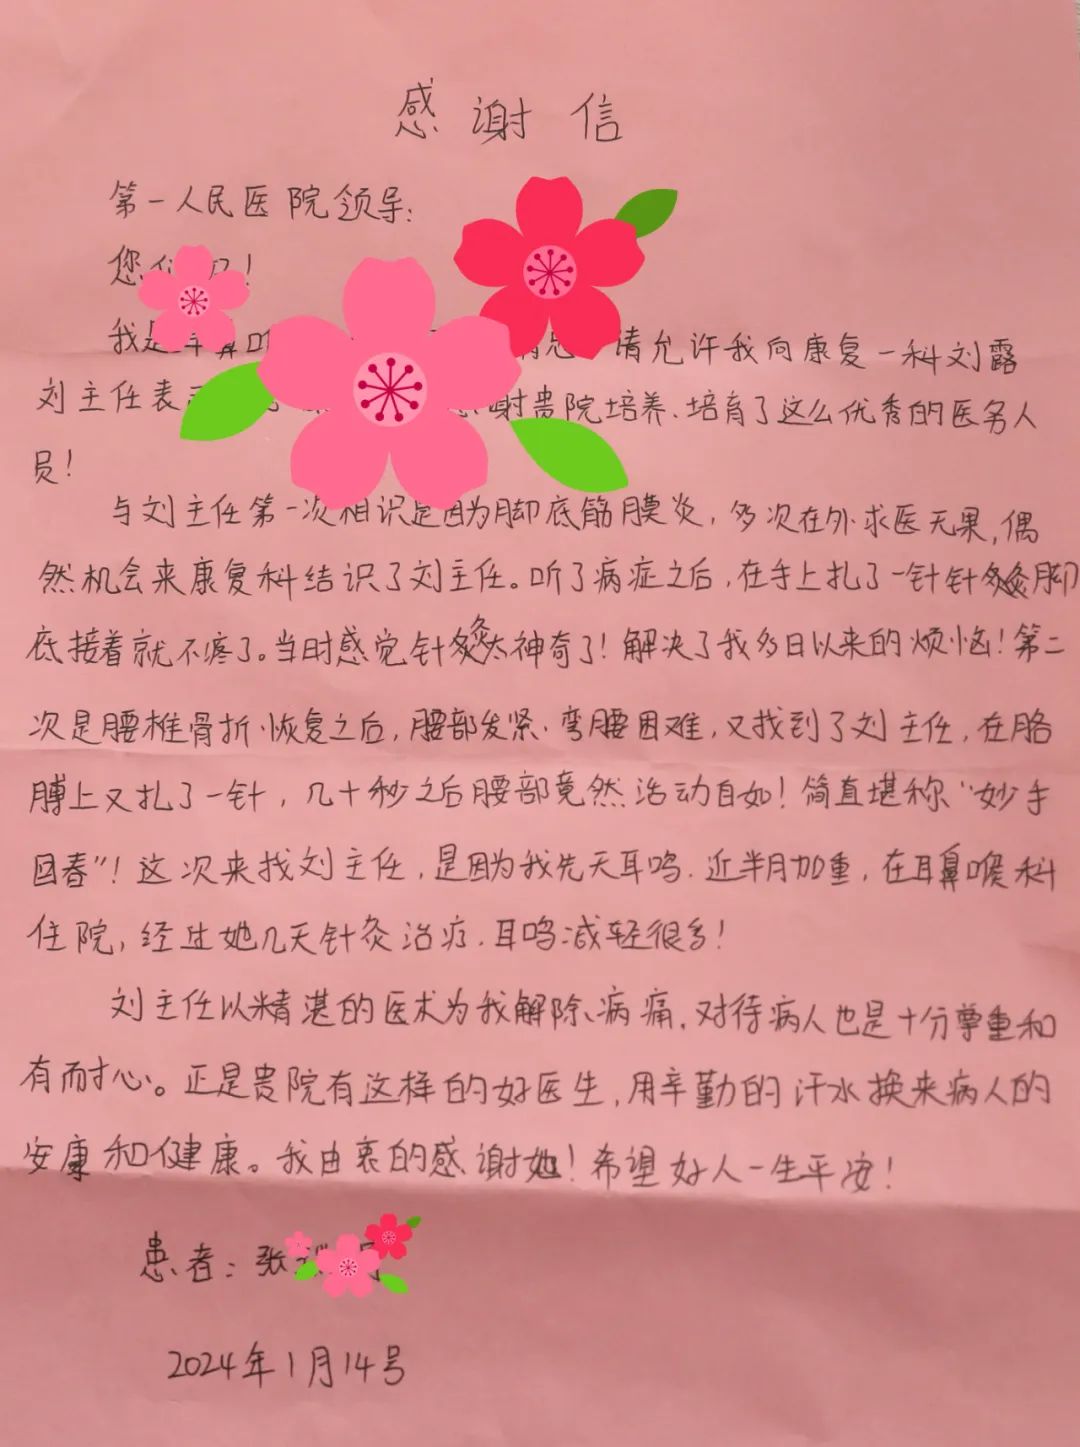 感谢信
第一人民医院领导:
您 !
我是 请允许我向康复一科刘露
刘主任表 谢贵院培养、培育了这么优秀的医务人
员!
与刘主任第一次相识是因为脚底筋膜炎,多次在外求医无果,偶
然机会来康复科结识了刘主任。听了病症之后,在手上扎了一针针灸脚
底接着就不疼了。当时感觉针灸太神奇了!解决了我多日以来的烦恼!第二
次是腰椎骨折·恢复之后,腰部发紧、弯腰困难,又找到了刘主任,在胳
膊上又扎了一针,几十秒之后腰部竟然活动自如!简直堪称“妙手
回春”!这次来找刘主任,是因为我先天耳鸣.近半月加重,在耳鼻喉科
住院,经过她几天针灸治疗.耳鸣减轻很多!
刘主任以精湛的医术为我解除病痛,对待病人也是十分尊重和
有耐心。正是贵院有这样的好医生,用辛勤的汗水换来病人的
安康和健康。我由衷的感谢她!希望好人一生平安!
患者:张
2024年1月14号